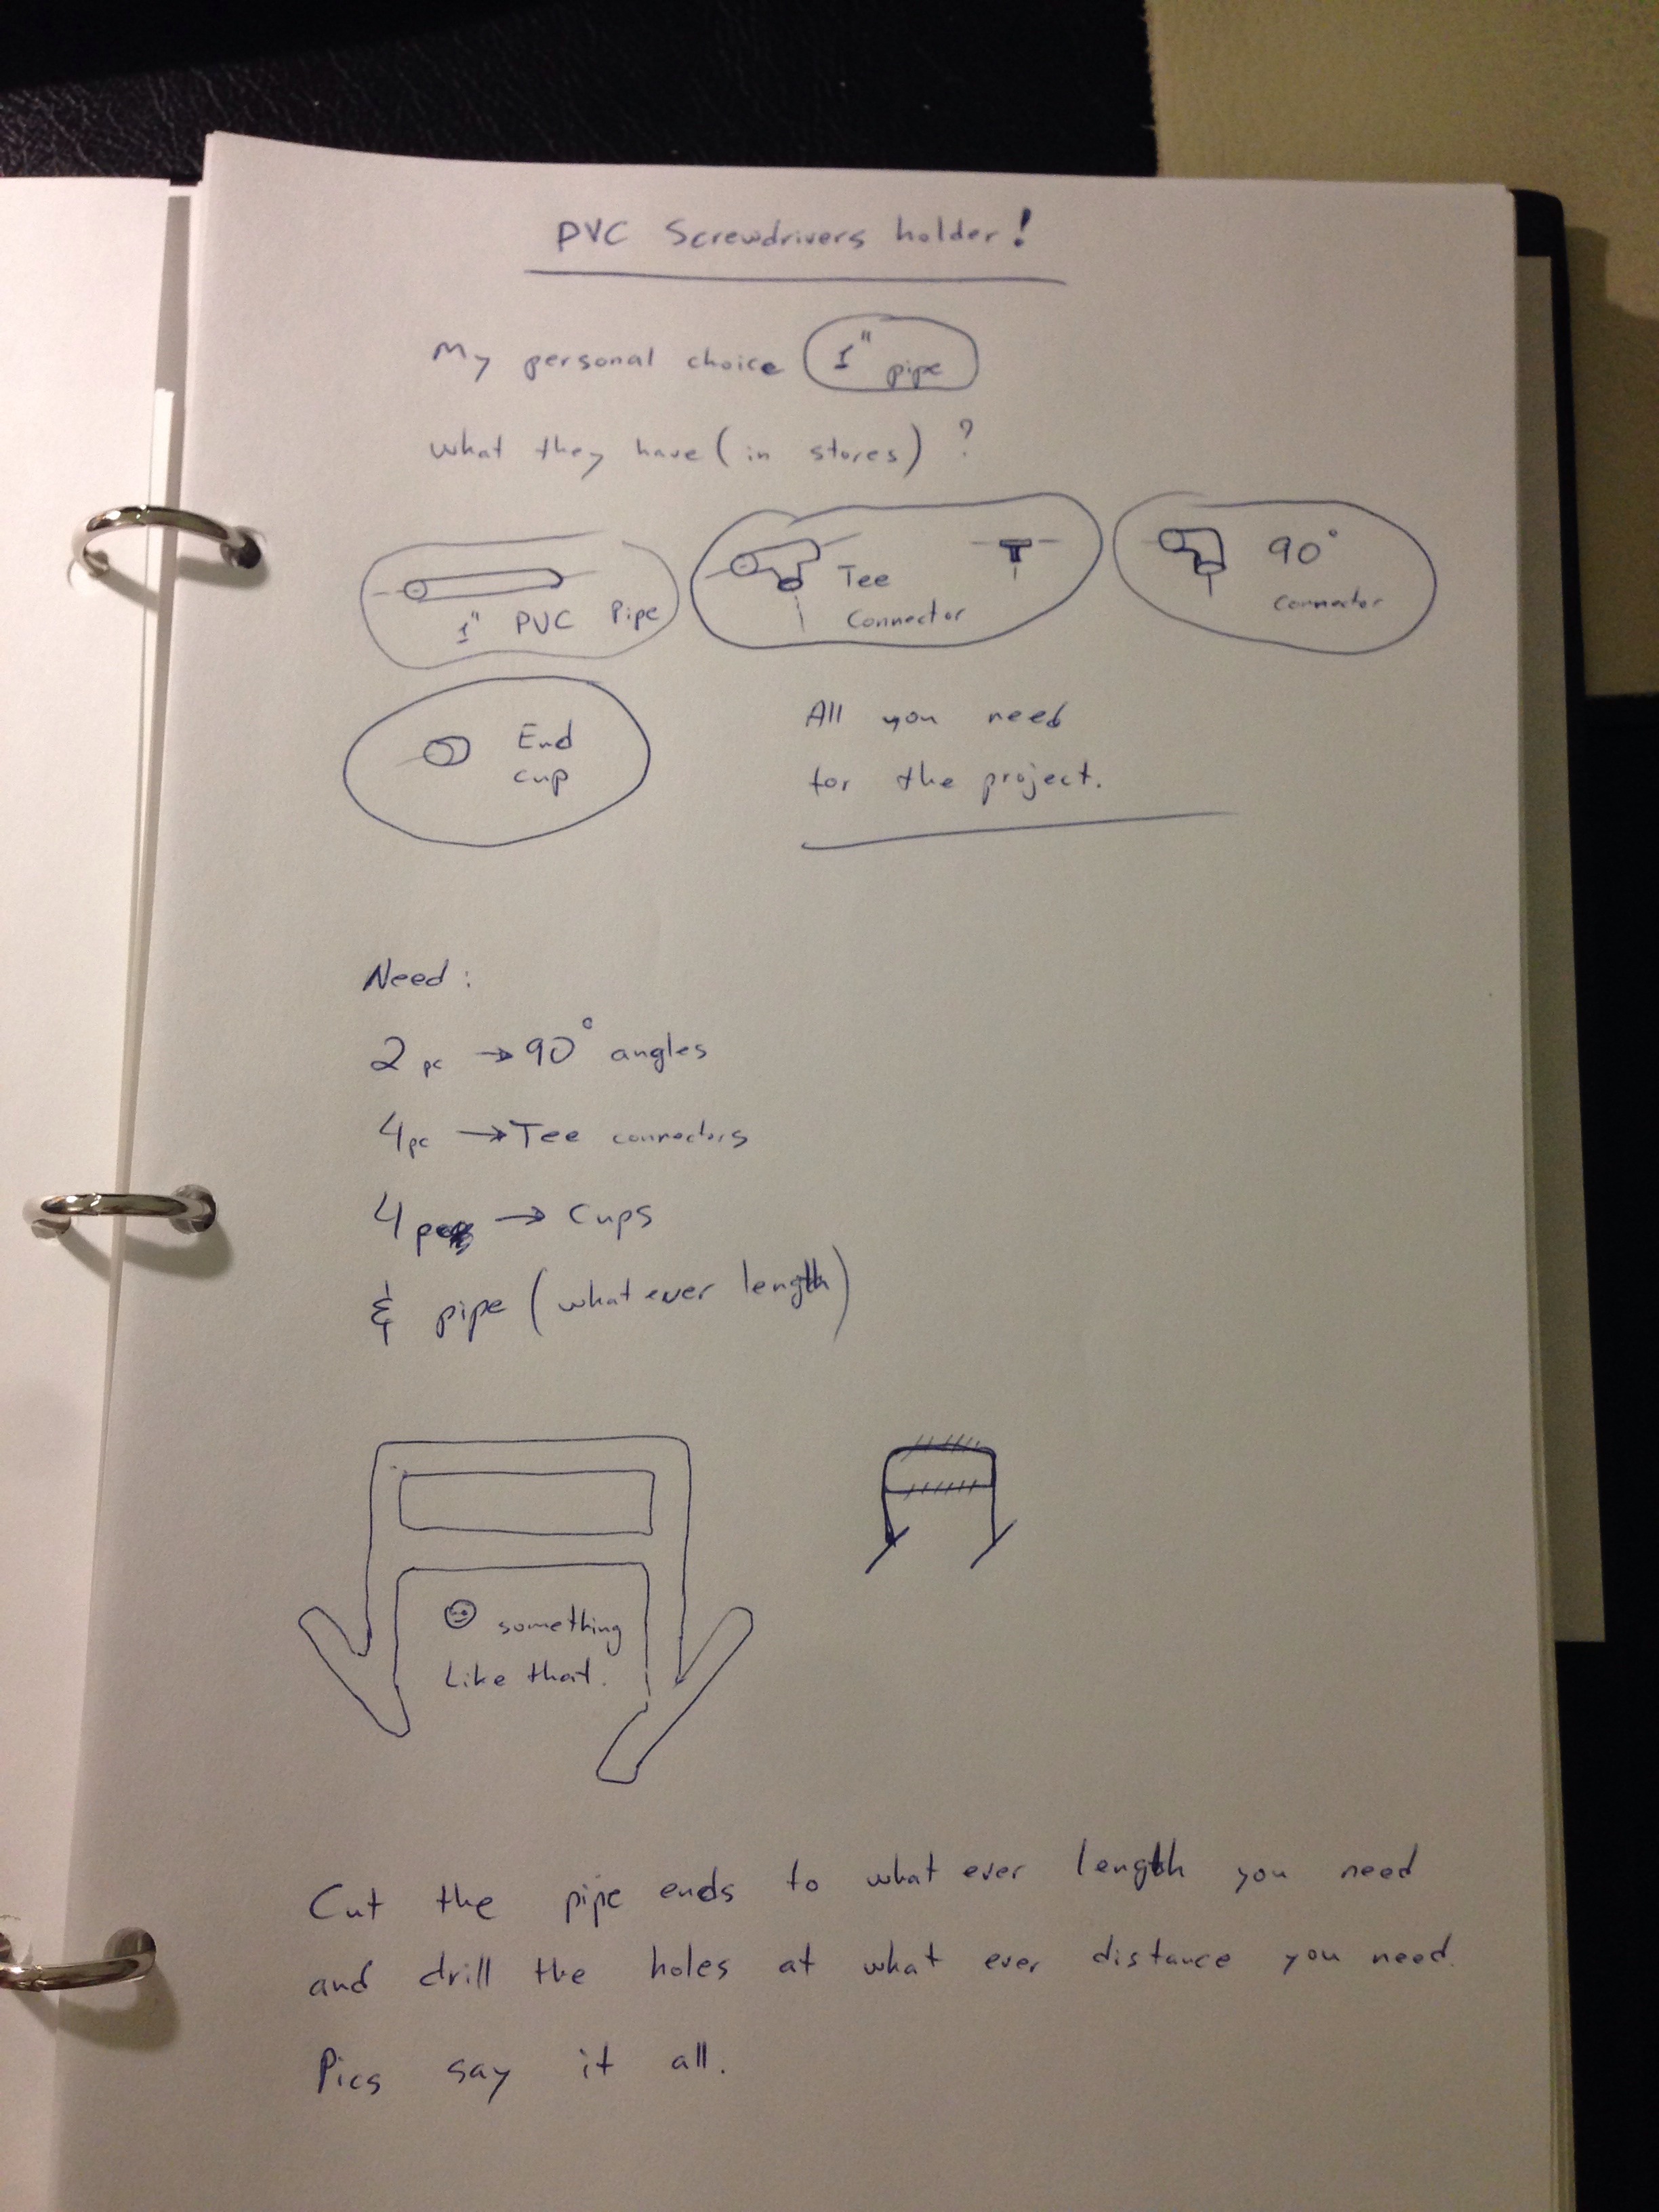 PVC Screwdrivers holder!
My personal choice 1" pipe
what they have (in stores) ?
1" PVC Pipe
Tee
Connector
90°
Connector
End
cup
All you need
for the project.
Need :
2 pc → 90° angles
4 pc → Tee connectors
4 → Cups
& pipe (what ever length)
something
Like that.
Cut the pipe ends to what ever length you need
and drill the holes at what ever distance you need.
Pics say it all.